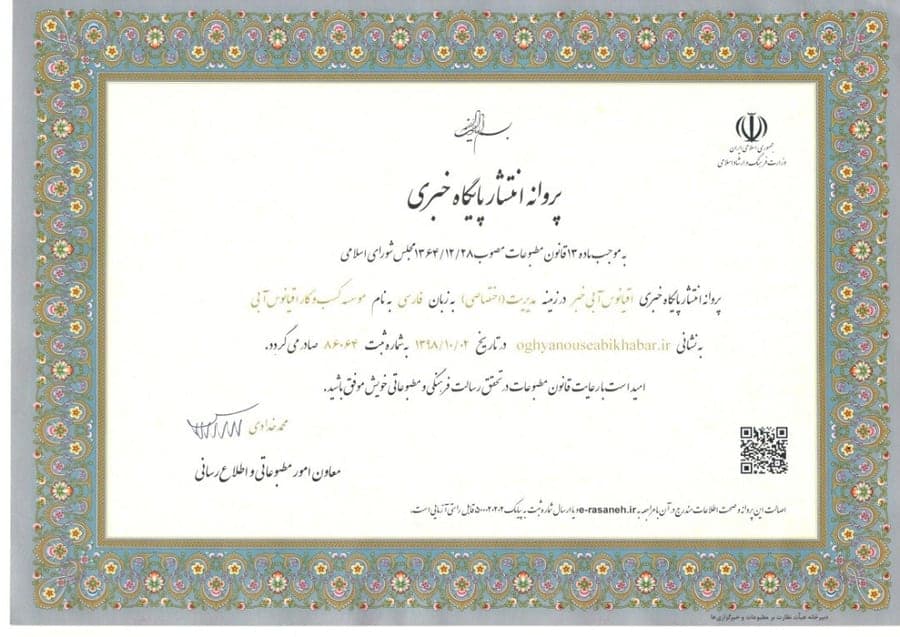 بسم الله الرحمن الرحیم
جمهوری اسلامی ایران
وزارت فرهنگ و ارشاد اسلامی
پروانه انتشار پایگاه خبری
به موجب ماده ۱۳ قانون مطبوعات مصوب ۱۳۶۴/۱۲/۲۸ مجلس شورای اسلامی
پروانه انتشار پایگاه خبری اقیانوس آبی خبر در زمینه مدیریت (اختصاصی) به زبان فارسی به نام موسسه کسب و کار اقیانوس آبی
به نشانی oghyanouseabikhabar.ir در تاریخ ۱۳۹۸/۱۰/۰۲ به شماره ثبت ۸۶۰۶۴ صادر می گردد.
امید است با رعایت قانون مطبوعات در تحقق رسالت فرهنگی و مطبوعاتی خویش موفق باشید.
محمد خدادی
معاون امور مطبوعاتی و اطلاع رسانی
اصالت این پروانه و صحت اطلاعات مندرج در آن با مراجعه به e-rasaneh.ir و یا ارسال شماره ثبت به پیامک ۵۰۰۰۲۰۲۰۲ قابل راستی آزمایی است.
دبیرخانه هیأت نظارت بر مطبوعات و خبرگزاری‌ها